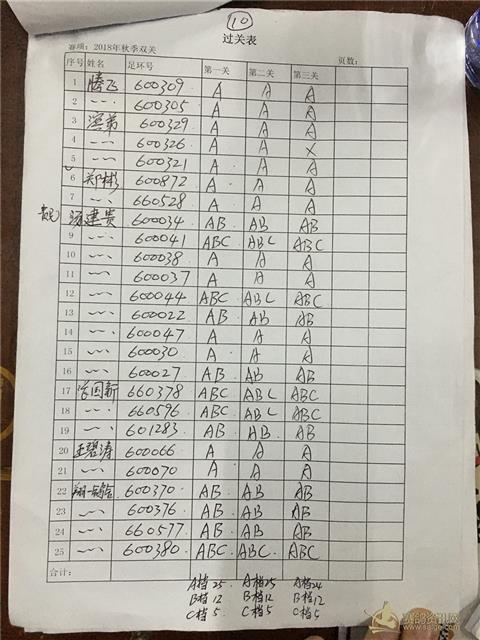 10
过关表
赛项：2018年秋季双关 页数：
序号 姓名 足环号 第一关 第二关 第三关
1 腾飞 600309 A A A
2 〃 600305 A A A
3 滢弟 600329 A A A
4 〃 600326 A A X
5 〃 600321 A A A
6 郑彬 600872 A A A
7 〃 660528 A A A
杨建贵 600034 AB AB AB
9 〃 600041 ABC ABC ABC
10 〃 600038 A A A
11 〃 600037 A A A
12 〃 600044 ABC ABC ABC
13 〃 600022 AB AB AB
14 〃 600047 A A A
15 〃 600030 A A A
16 〃 600027 AB AB AB
17 国新 660378 ABC ABC ABC
18 〃 660596 ABC ABC ABC
19 〃 601283 AB AB AB
20 王碧涛 600066 A A A
21 〃 600070 A A A
22 翔一鸽舍 600370 AB AB AB
23 〃 600376 AB AB AB
24 〃 660577 AB AB AB
25 〃 600380 ABC ABC ABC
合计：
A档25 A档25 A档24
B档12 B档12 B档12
C档5 C档5 C档5
赛鸽资讯网